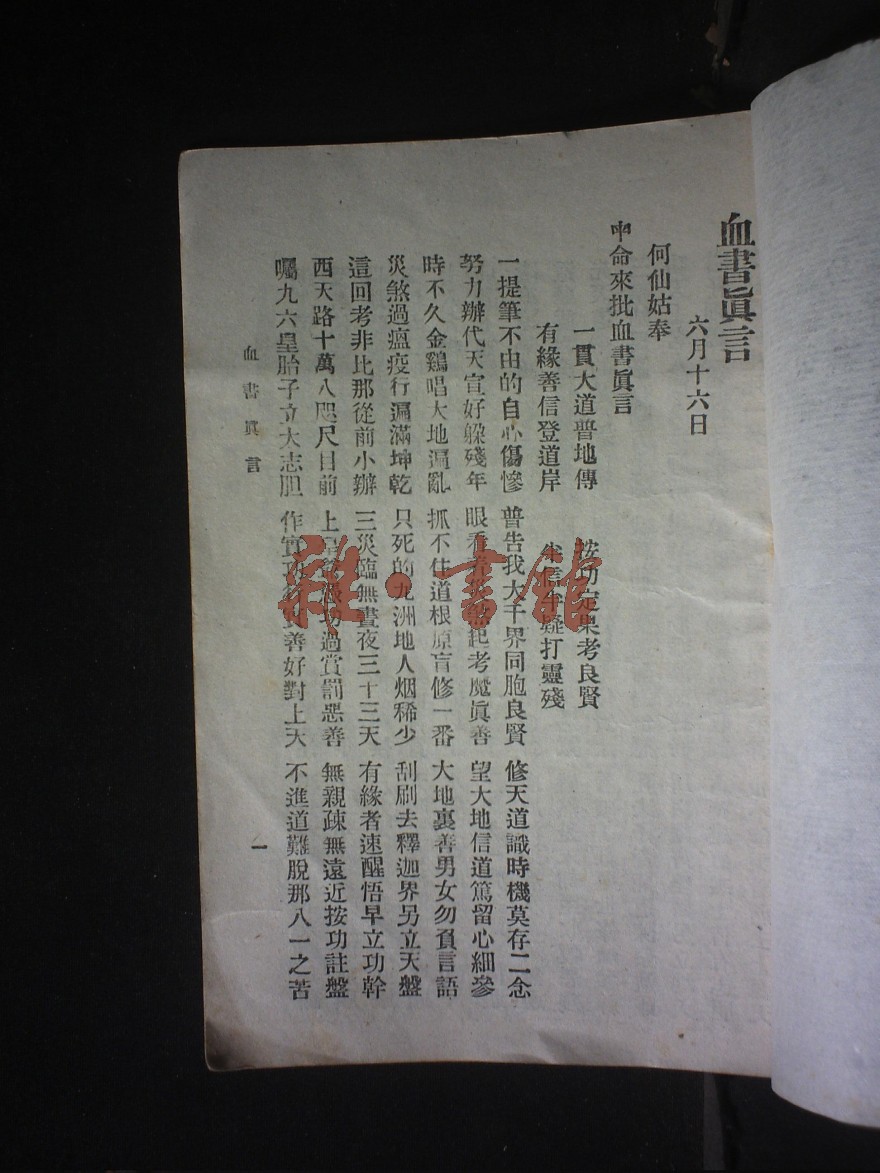 血書眞言
六月十六日
何仙姑奉
命來批血書眞言
一貫大道普地傳　按功定果考良賢
有緣善信登道岸　信疑打靈殘
一提筆不由的自心傷慘　普告我大千界同胞良賢　修天道識時機莫存二念
努力辦代天宣好躲殘年　眼看起考魔眞善　望大地信道篤留心細參
時不久金鷄唱大地遍亂　抓不住道根原盲修一番　大地裏善男女勿負言語
災煞過瘟疫行遍滿坤乾　只死的九洲地人烟稀少　刮刷去釋迦界另立天盤
這回考非比那從前小辦　三災臨無晝夜三十三天　有緣者速醒悟早立功幹
西天路十萬八咫尺目前　上憑功過賞罰惡善　無親疎無遠近按功註盤
囑九六皇胎子立大志胆　作實功善好對上天　不進道難脫那八一之苦
血書眞言　一
雜·書館